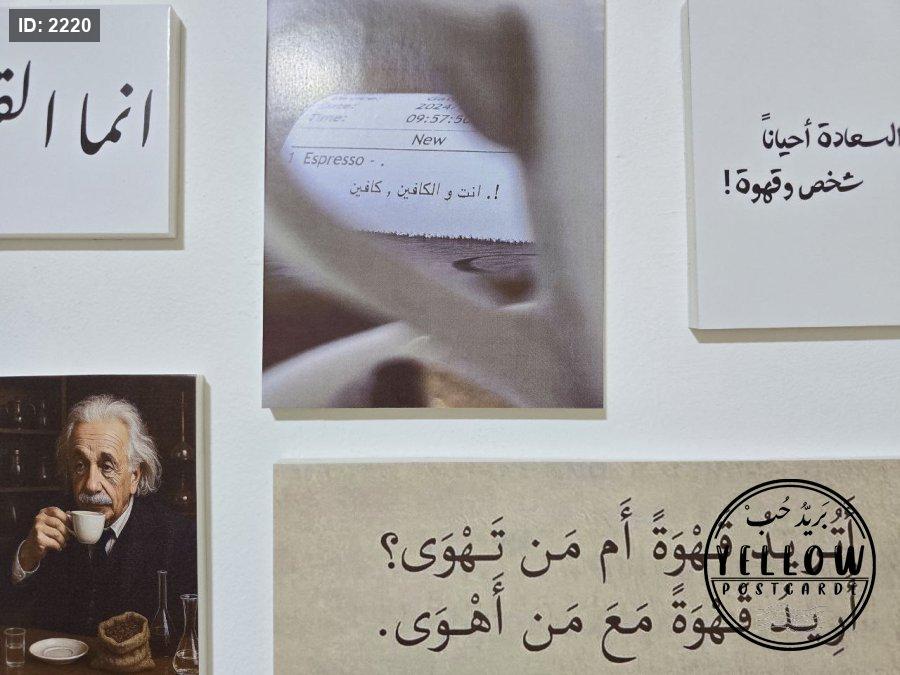 ID: 2220
انما ا
2024
Time: 09:57:50
New
1 Espresso - .
انت و الكافين , كافين .!
السعادة أحياناً
شخص وقهوة!
أَتُرِيدُ قَهْوَةً أَم مَن تَـهْوَى؟
أُرِيدُ قَهْوَةً مَعَ مَن أَهْـوَى.
بَرِيدُ حُبْ
YELLOW
POSTCARDS